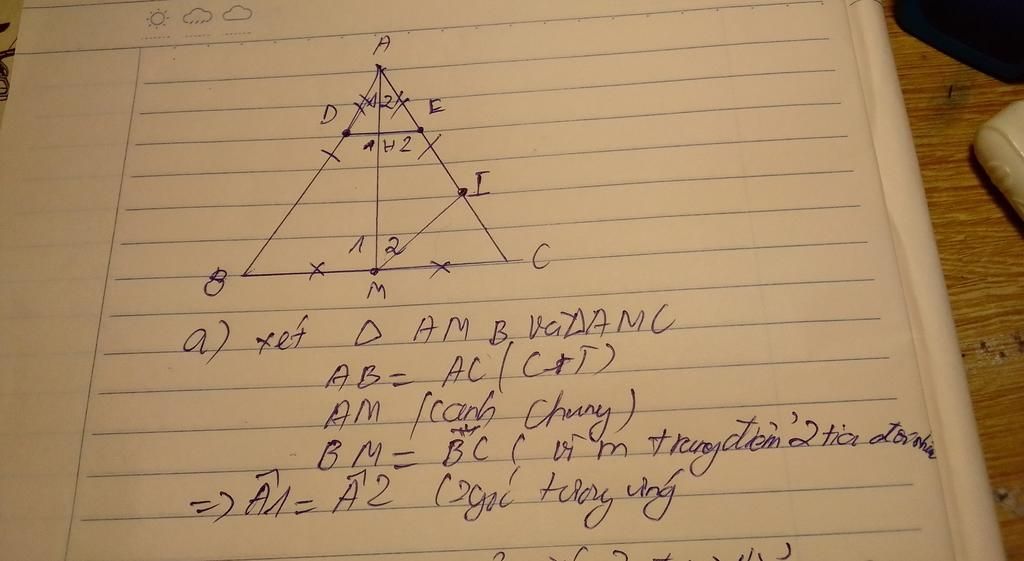 A
D
1 2
E
1 H 2
I
1 2
B
M
C
a) xét Δ AMB và Δ AMC
AB = AC (GT)
AM (cạnh chung)
BM = BC ( vì m trung điểm 2 tia đối nhau
=> Â1 = Â2 (2 góc tương ứng